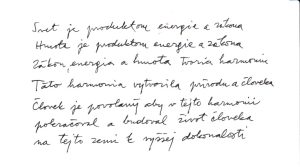 Svet je produktom energie a zákona
Hmota je produktom energie a zákona
Zákon, energia a hmota tvoria harmóniu
Táto harmónia vytvorila prírodu a človeka
Človek je povolaný aby v tejto harmónii
pokračoval a budoval život človeka
na tejto zemi k vyššej dokonalosti